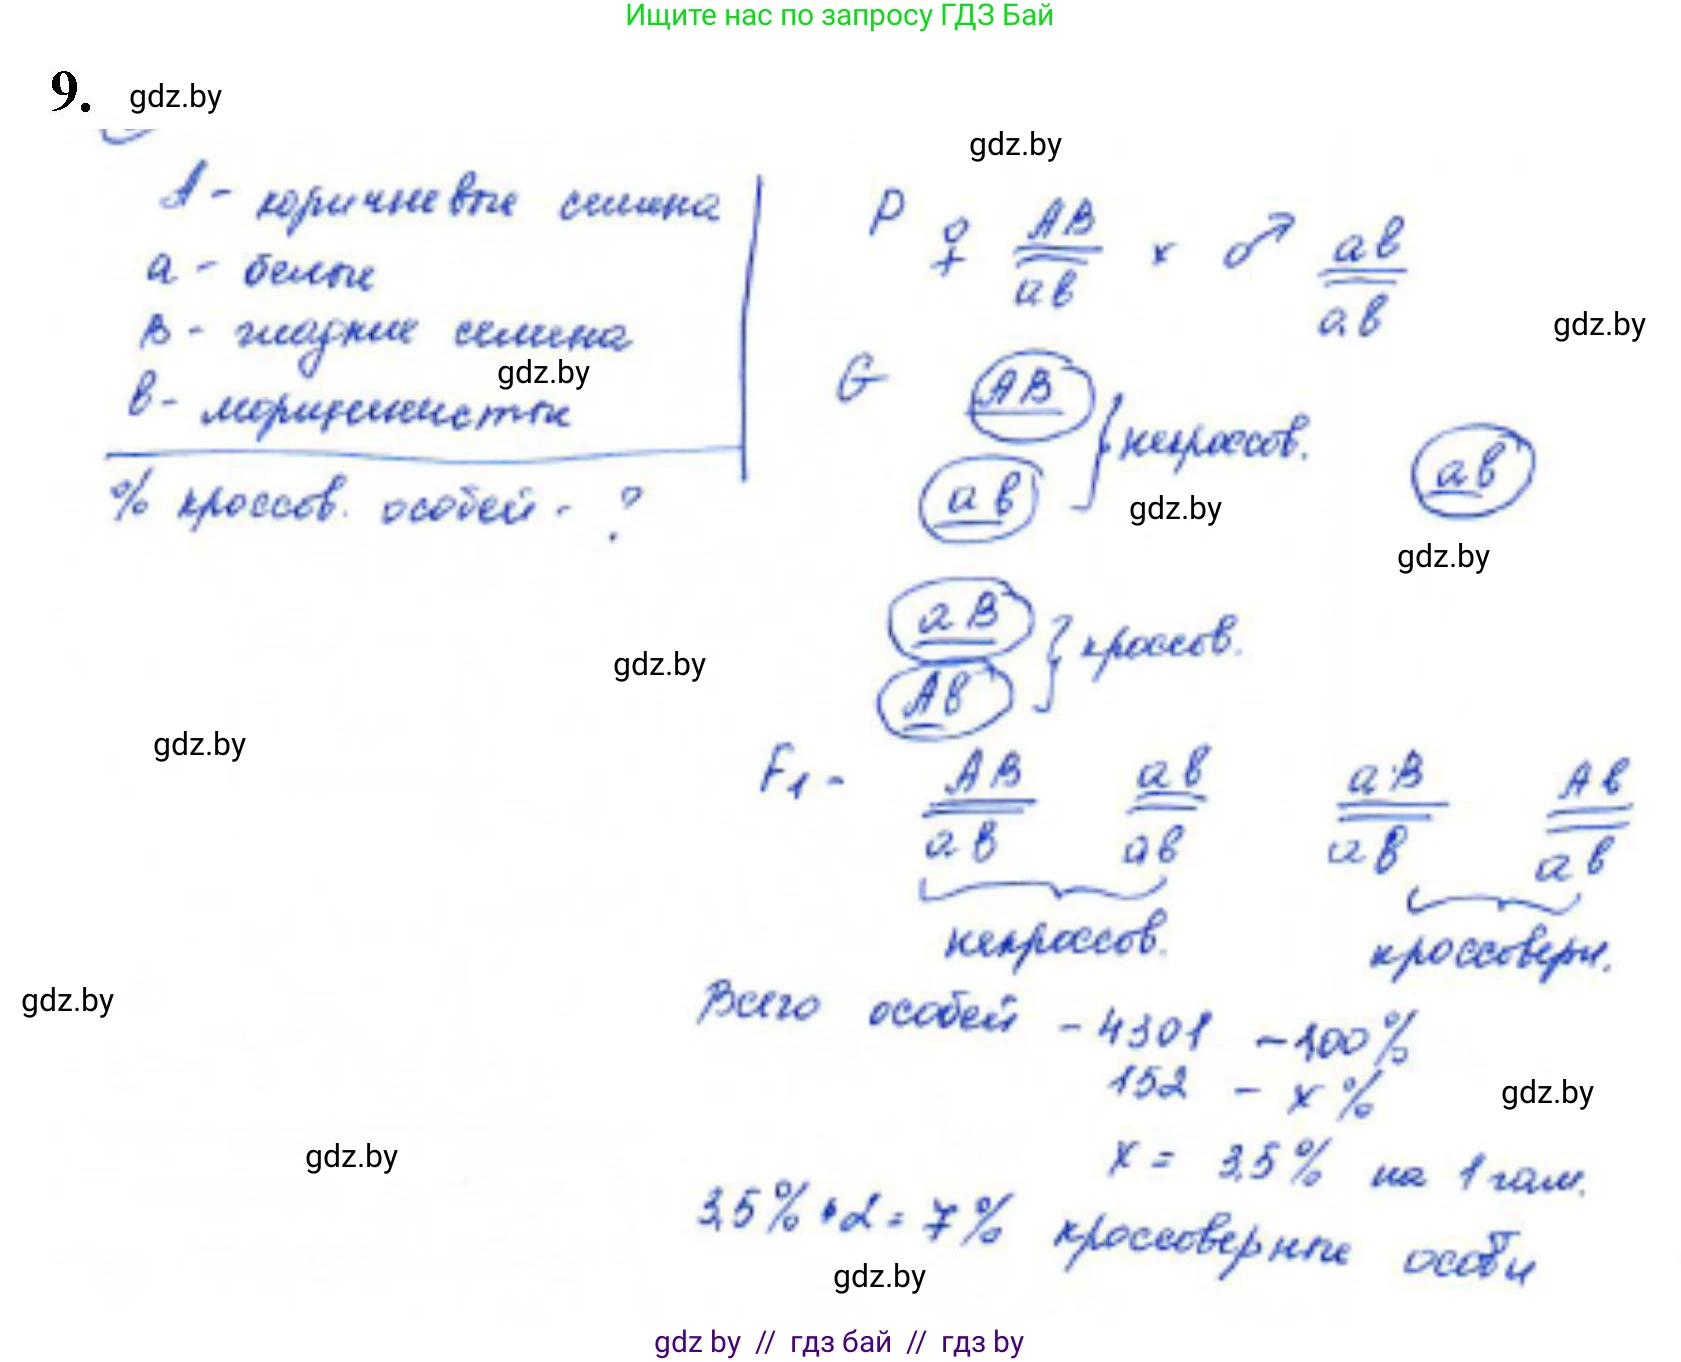 Ищите нас по запросу ГДЗ Бай
9. gdz.by
gdz.by
A - коричневые семена
a - белые
B - гладкие семена
gdz.by
в - морщинистые
% кроссов. особей - ?
P ♀ AB × ♂ ав
ав ав
gdz.by
G AB
ав
некроссов.
ав
gdz.by
gdz.by
аВ
Ав
кроссов.
gdz.by
gdz.by
F1 - AB ав аВ Ав
ав ав ав ав
некроссов. кроссоверн.
gdz.by
Всего особей - 4301 - 100%
152 - x %
gdz.by
x = 3,5% на 1 гам.
gdz.by
3,5% • 2 = 7% кроссоверные особи
gdz.by
gdz by // гдз бай // гдз by